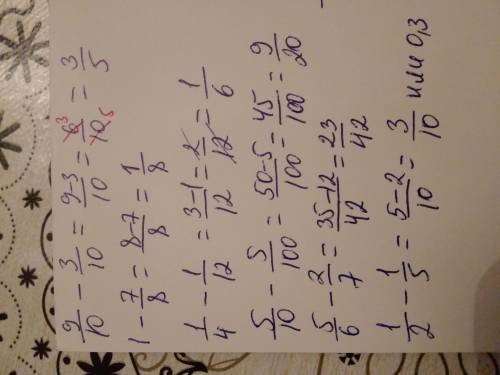 9/10 - 3/10 = 9-3/10 = 6³/10₅ = 3/5
1 - 7/8 = 8-7/8 = 1/8
1/4 - 1/12 = 3-1/12 = 2/12 = 1/6
5/10 - 5/100 = 50-5/100 = 45/100 = 9/20
5/6 - 2/7 = 35-12/42 = 23/42
1/2 - 1/5 = 5-2/10 = 3/10 или 0,3